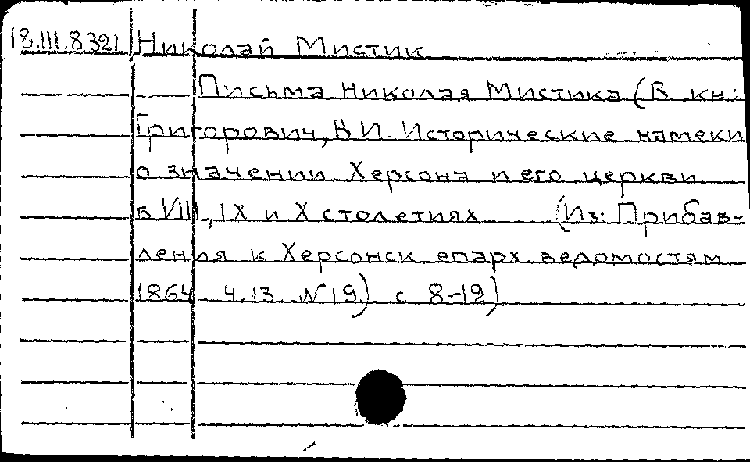 18.III.8321 Николай Мистик
Письма Николая Мистика (В кн:
Григорович, В.И. Исторические намеки
о значении Херсона и его церкви
в VIII, IX и X столетиях (Из: Прибав-
ления к Херсонск епарх ведомостям
1864 ч.13 №19) с 8-12)